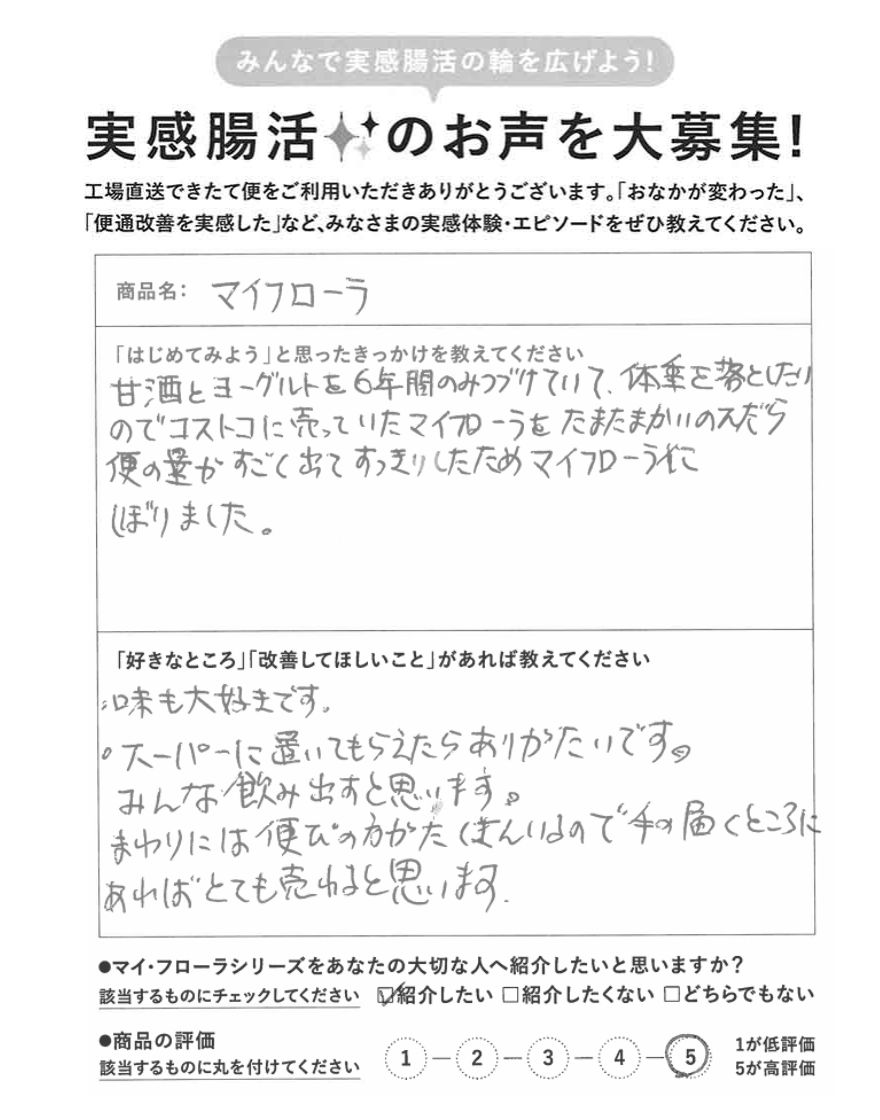 みんなで実感腸活の輪を広げよう!
実感腸活のお声を大募集!
工場直送できたて便をご利用いただきありがとうございます。「おなかが変わった」、
「便通改善を実感した」など、みなさまの実感体験・エピソードをぜひ教えてください。
商品名: マイフローラ
「はじめてみよう」と思ったきっかけを教えてください
甘酒とヨーグルトを6年間のみつづけていて、体重を落としたい
のでコストコに売っていたマイフローラをたまたまかいのんだら
便の量がすごく出てすっきりしたためマイフローラに
しぼりました。
「好きなところ」「改善してほしいこと」があれば教えてください
・味も大好きです。
・スーパーに置いてもらえたらありがたいです。
みんな飲み出すと思います。
まわりには便ぴの方がたくさんいるので手の届くところに
あればとても売れると思います.
●マイ・フローラシリーズをあなたの大切な人へ紹介したいと思いますか?
該当するものにチェックしてください ☑紹介したい □紹介したくない □どちらでもない
●商品の評価
該当するものに丸を付けてください
1 — 2 — 3 — 4 — 5
1が低評価
5が高評価